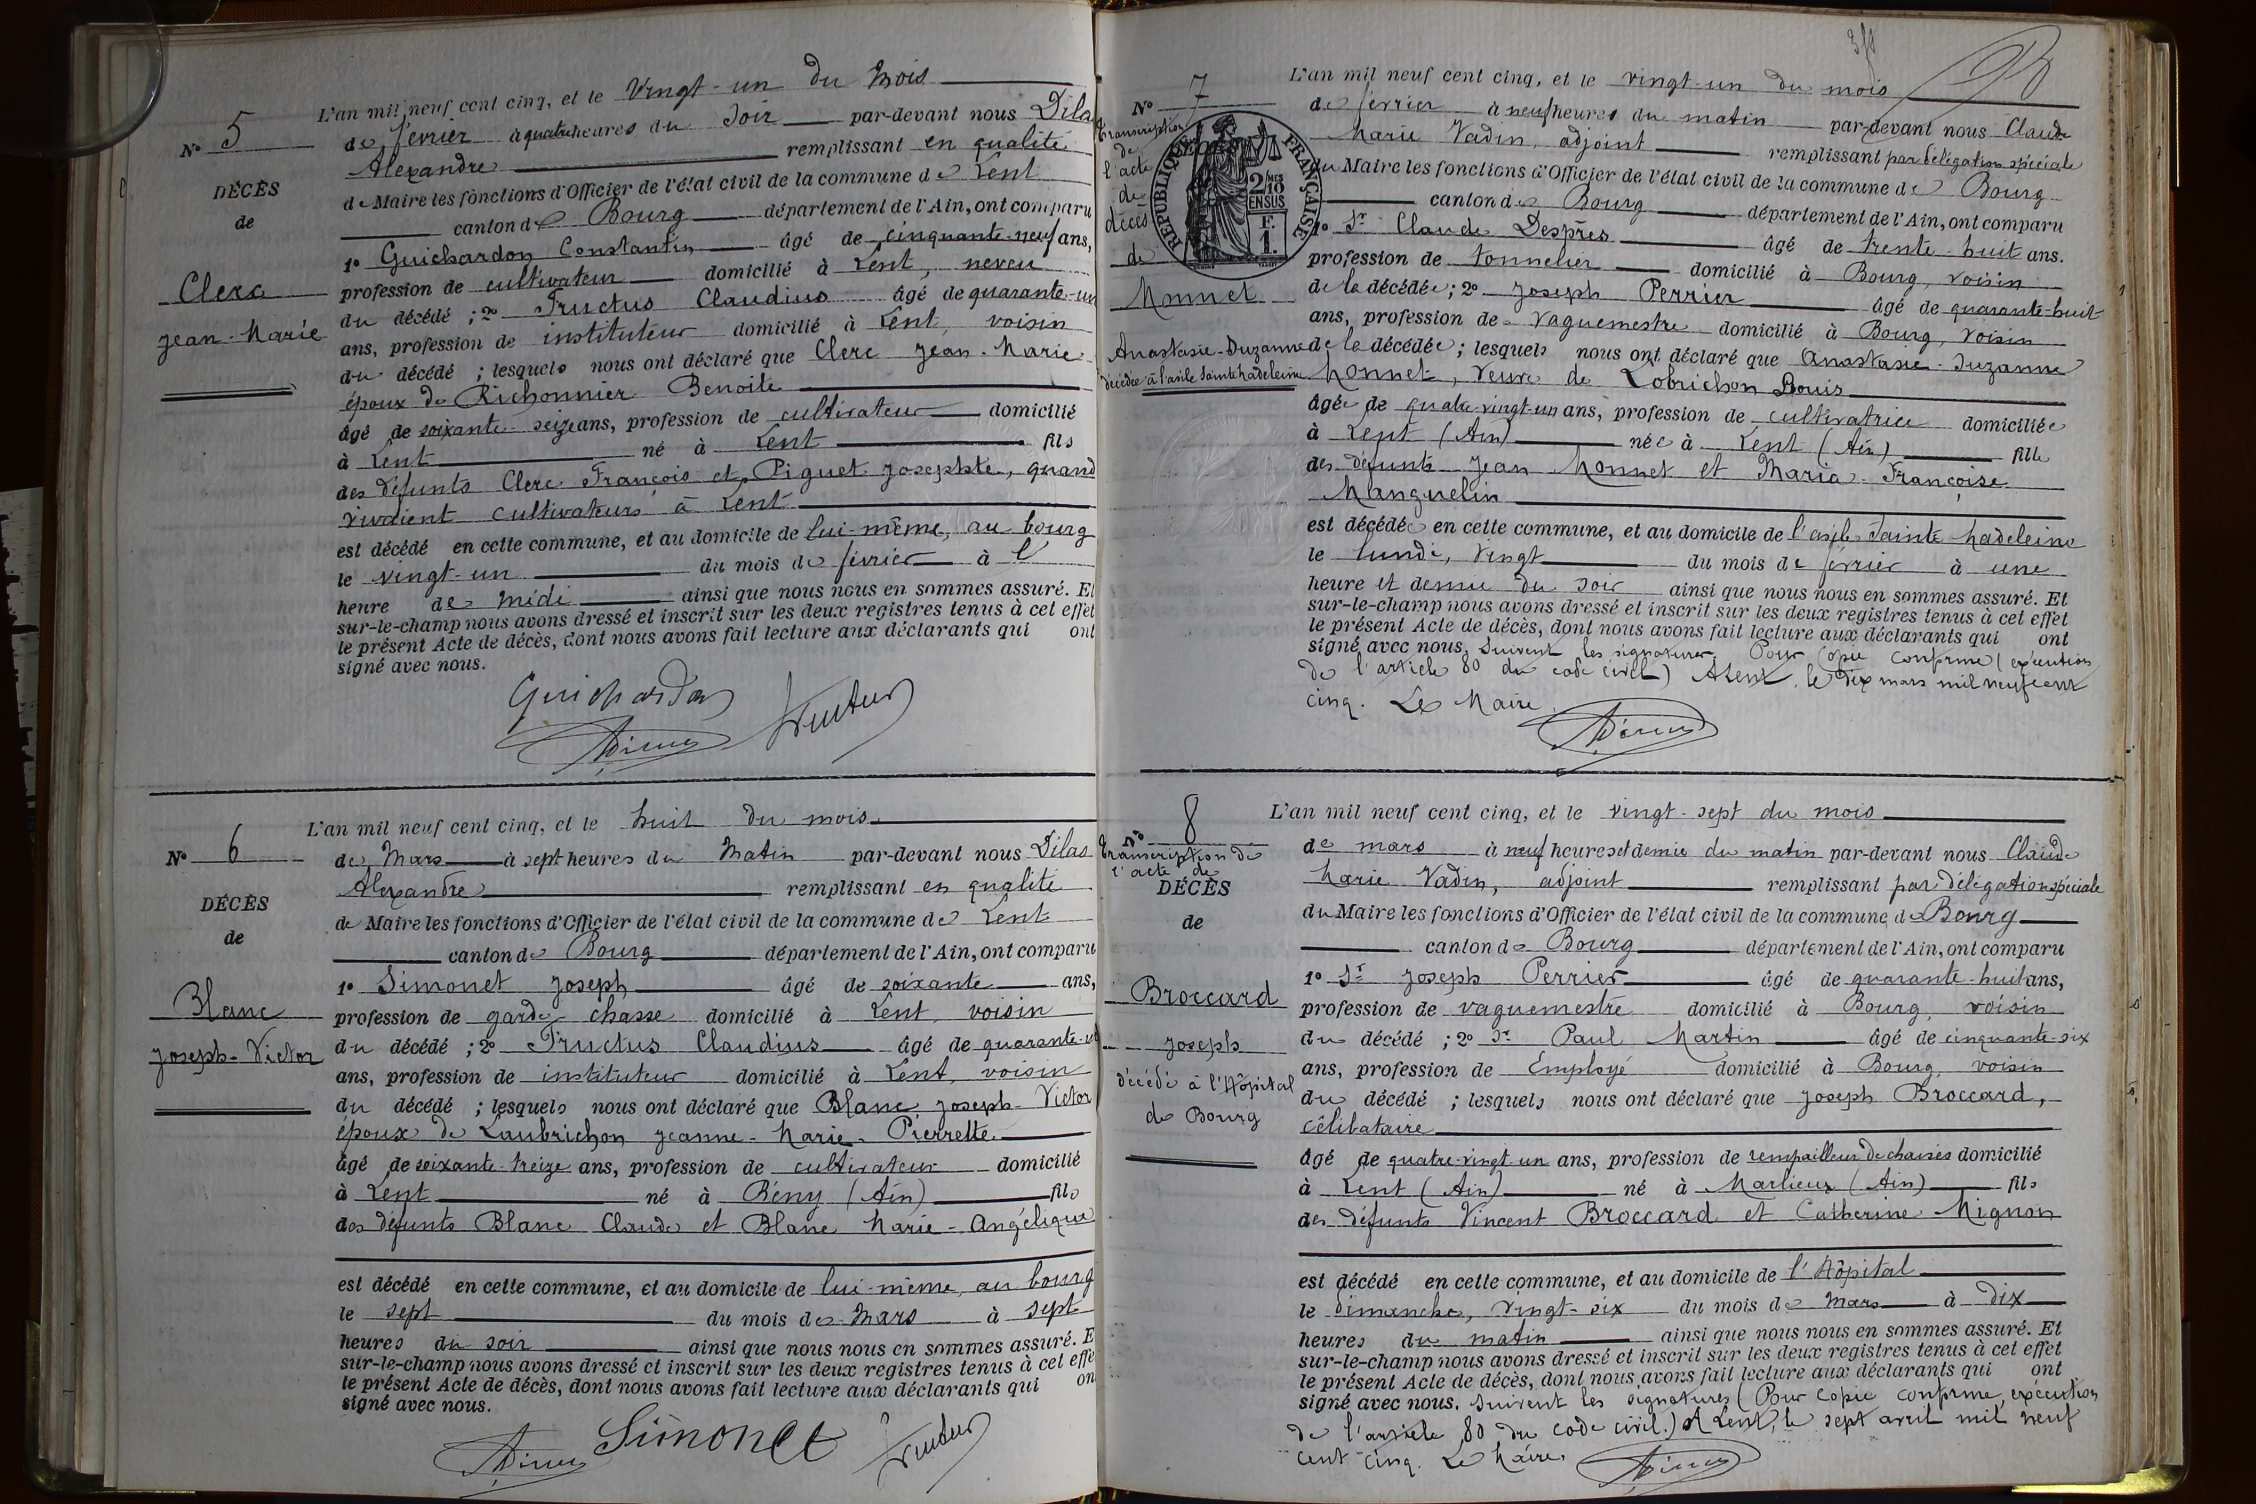 L'an mil neuf cent cinq, et le vingt-un du mois
N° 5
de février à quatre heures du soir par-devant nous Dilas
Alexandre remplissant en qualité
DÉCÈS
de Maire les fonctions d'Officier de l'état civil de la commune de Lent
de
canton de Bourg département de l'Ain, ont comparu
1° Guichardon Constantin âgé de cinquante-neuf ans,
Clerc
profession de cultivateur domicilié à Lent, neveu
Jean-Marie
du décédé ; 2° Fructus Claudius âgé de quarante-un
ans, profession de instituteur domicilié à Lent, voisin
du décédé ; lesquels nous ont déclaré que Clerc Jean-Marie
époux de Richonnier Benoite
âgé de soixante-seize ans, profession de cultivateur domicilié
à Lent né à Lent fils
des défunts Clerc François et Piguet Josephte, quand
vivaient cultivateurs à Lent
est décédé en cette commune, et au domicile de lui-même, au bourg
le vingt-un du mois de février à l'
heure de midi ainsi que nous nous en sommes assuré. Et
sur-le-champ nous avons dressé et inscrit sur les deux registres tenus à cet effet
le présent Acte de décès, dont nous avons fait lecture aux déclarants qui ont
signé avec nous.
Guichardon
Fructus
L'an mil neuf cent cinq, et le huit du mois
N° 6
de Mars à sept heures du Matin par-devant nous Dilas
Alexandre remplissant en qualité
DÉCÈS
de Maire les fonctions d'Officier de l'état civil de la commune de Lent
de
canton de Bourg département de l'Ain, ont comparu
1° Simonet Joseph âgé de soixante ans,
Blanc
profession de garde-chasse domicilié à Lent, voisin
Joseph-Victor
du décédé ; 2° Fructus Claudius âgé de quarante-un
ans, profession de instituteur domicilié à Lent, voisin
du décédé ; lesquels nous ont déclaré que Blanc Joseph-Victor
époux de Laubrichon Jeanne-Marie-Pierrette
âgé de soixante-treize ans, profession de cultivateur domicilié
à Lent né à Bény (Ain) fils
des défunts Blanc Claude et Blanc Marie-Angélique
est décédé en cette commune, et au domicile de lui-même, au bourg
le sept du mois de Mars à sept
heures du soir ainsi que nous nous en sommes assuré. E
sur-le-champ nous avons dressé et inscrit sur les deux registres tenus à cet effe
le présent Acte de décès, dont nous avons fait lecture aux déclarants qui on
signé avec nous.
Simonet
Fructus
L'an mil neuf cent cinq, et le vingt-un du mois
N° 7
de février à neuf heures du matin par-devant nous Claude
Marie Vadin, adjoint remplissant par délégation spéciale
du Maire les fonctions d'Officier de l'état civil de la commune de Bourg
canton de Bourg département de l'Ain, ont comparu
Transcription
de
l'acte
de
décès
de
RÉPUBLIQUE FRANÇAISE
2 MES
10
EN SUS
1 F.
1° Sr Claude Desprès âgé de trente-huit ans.
profession de tonnelier domicilié à Bourg, voisin
Monnet
de la décédée ; 2° Joseph Perrier âgé de quarante-huit
ans, profession de vaguemestre domicilié à Bourg, voisin
Anastasie-Suzanne
de la décédée ; lesquels nous ont déclaré que Anastasie-Suzanne
décédée à l'asile Sainte Madeleine
Monnet, veuve de Lobrichon Louis
âgée de quatre-vingt-un ans, profession de cultivatrice domiciliée
à Lent (Ain) née à Lent (Ain) fille
des défunts Jean Monnet et Maria-Françoise
Manguelin
est décédée en cette commune, et au domicile de l'asile Sainte Madeleine
le lundi, vingt du mois de février à une
heure et demie du soir ainsi que nous nous en sommes assuré. Et
sur-le-champ nous avons dressé et inscrit sur les deux registres tenus à cet effet
le présent Acte de décès, dont nous avons fait lecture aux déclarants qui ont
signé avec nous. Suivent les signatures. Pour copie conforme (exécution
de l'article 80 du code civil) A Lent, le dix mars mil neuf cent
cinq. Le Maire.
L'an mil neuf cent cinq, et le vingt-sept du mois
N° 8
de mars à neuf heures et demie du matin par-devant nous Claude
Transcription de
l'acte de
DÉCÈS
de
Marie Vadin, adjoint remplissant par délégation spéciale
du Maire les fonctions d'Officier de l'état civil de la commune de Bourg
canton de Bourg département de l'Ain, ont comparu
1° Sr Joseph Perrier âgé de quarante-huit ans,
Broccard
profession de vaguemestre domicilié à Bourg, voisin
Joseph
du décédé ; 2° Sr Paul Martin âgé de cinquante-six
décédé à l'Hôpital
ans, profession de Employé domicilié à Bourg, voisin
de Bourg
du décédé ; lesquels nous ont déclaré que Joseph Broccard,
célibataire
âgé de quatre-vingt-un ans, profession de rempailleur de chaises domicilié
à Lent (Ain) né à Marlieux (Ain) fils
des défunts Vincent Broccard et Catherine Mignon
est décédé en cette commune, et au domicile de l'Hôpital
le dimanche, vingt-six du mois de Mars à dix
heures du matin ainsi que nous nous en sommes assuré. Et
sur-le-champ nous avons dressé et inscrit sur les deux registres tenus à cet effet
le présent Acte de décès, dont nous avons fait lecture aux déclarants qui ont
signé avec nous. Suivent les signatures (Pour copie conforme, exécution
de l'article 80 du code civil.) A Lent, le sept avril mil neuf
cent cinq. Le Maire.